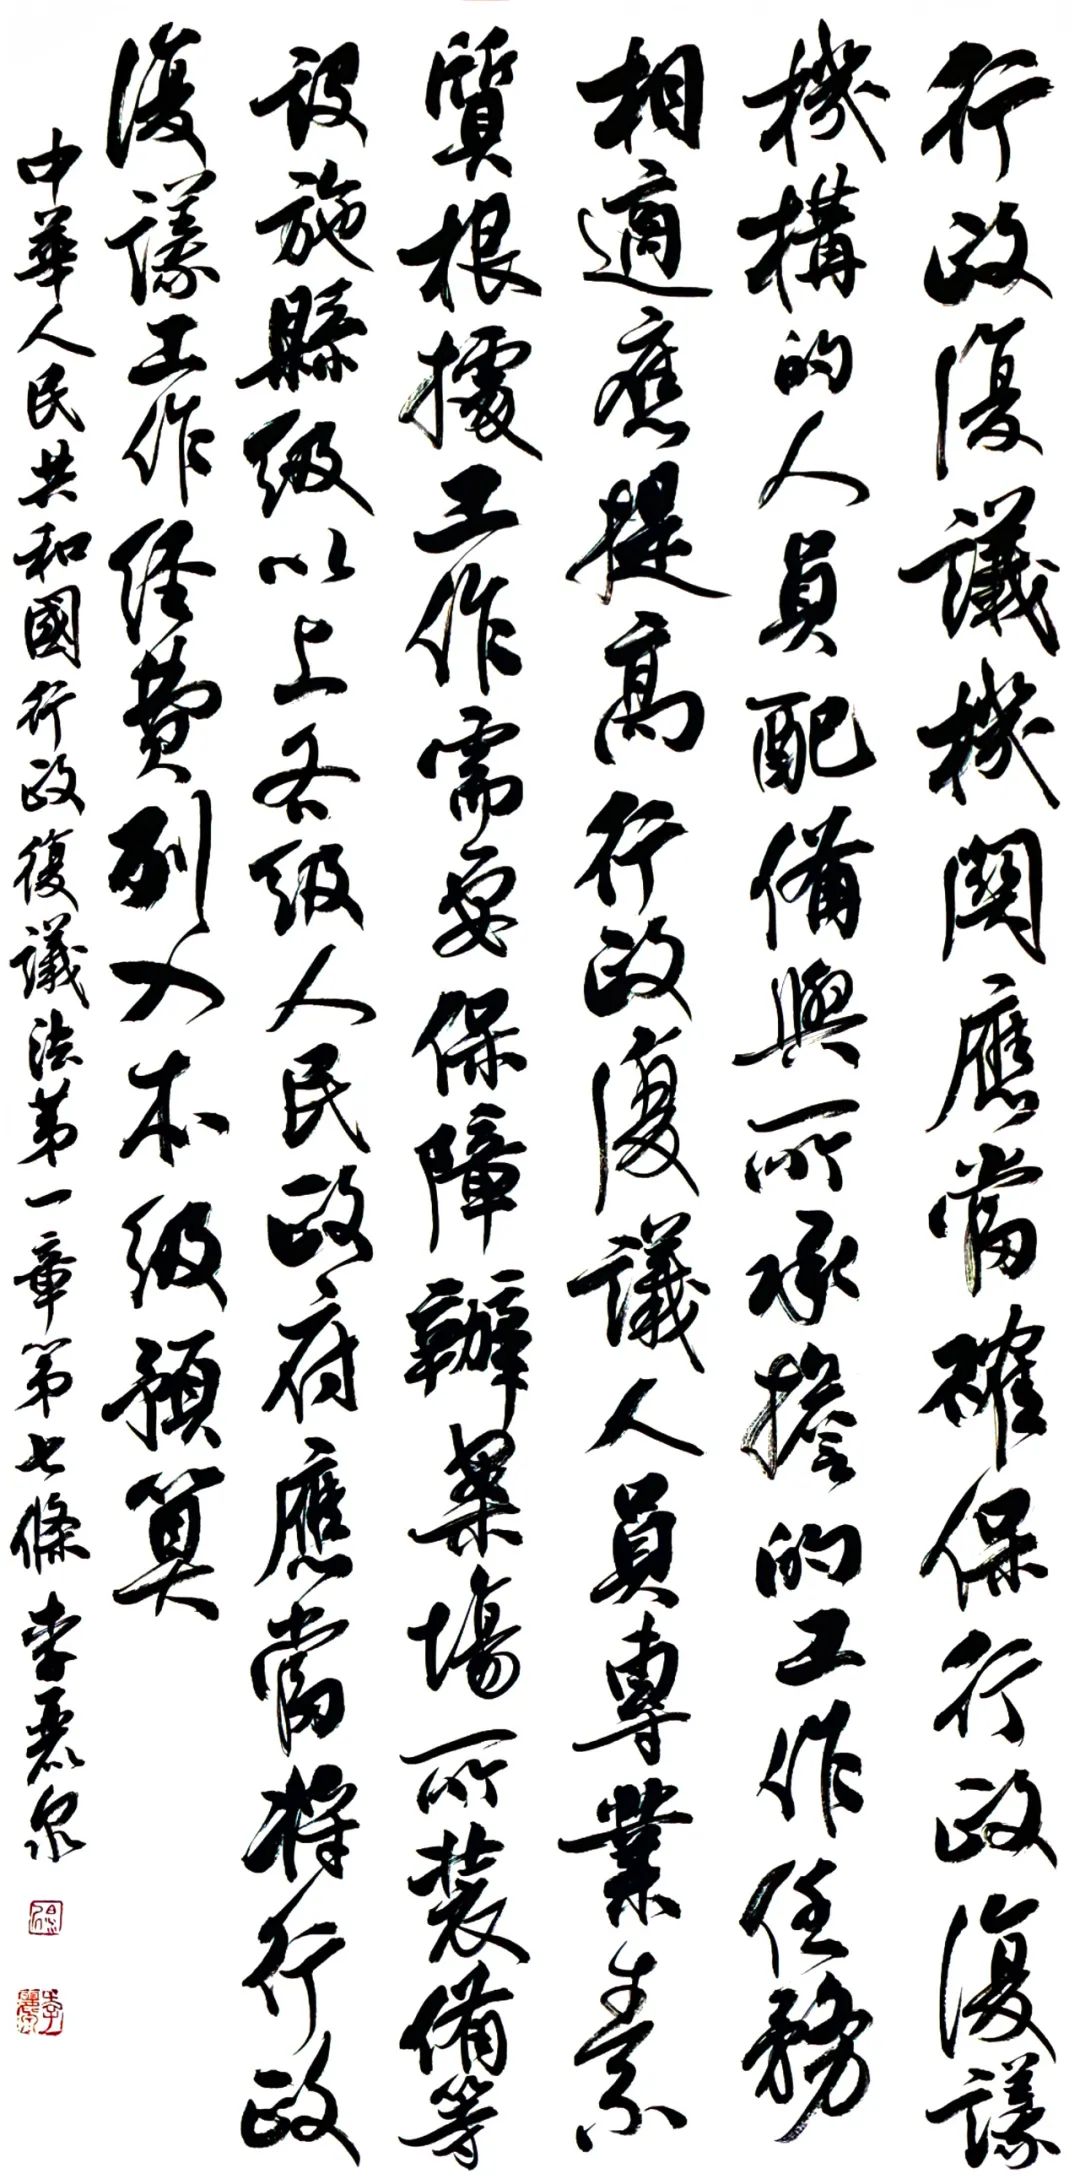 行政復議機關應當確保行政復議
機構的人員配備與所承擔的工作任務
相適應提高行政復議人員專業素
質根據工作需要保障辦案場所裝備等
設施縣級以上各級人民政府應當將行政
復議工作經費列入本級預算
中華人民共和國行政復議法第一章第七條 李麗泉